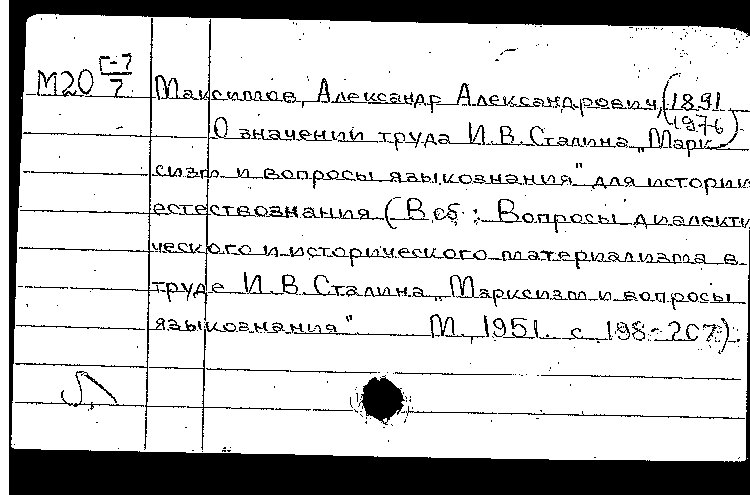 М20 Г-7/7 Максимов, Александр Александрович, (1891
1976)
О значении труда И.В.Сталина „Марк-
сизм и вопросы языкознания" для истории
естествознания (В сб.: Вопросы диалекти
ческого и исторического материализма в
труде И.В.Сталина „Марксизм и вопросы
языкознания". М., 1951. с. 198-207).